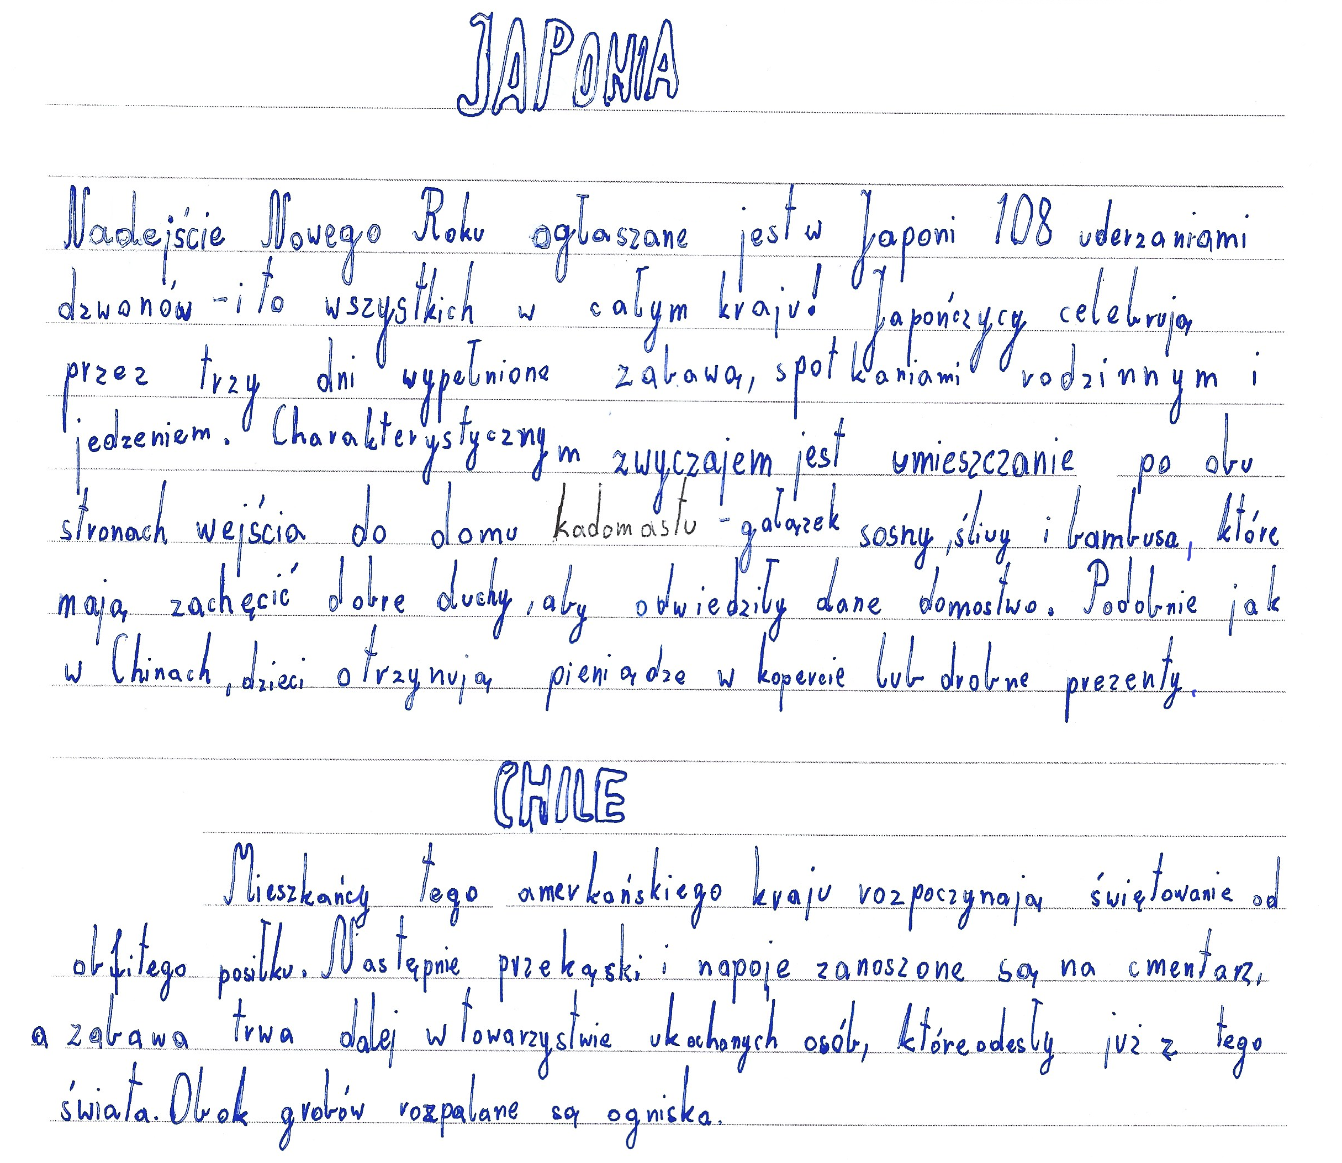 JAPONIA
Nadejście Nowego Roku ogłaszane jest w Japoni 108 uderzaniami
dzwonów - i to wszystkich w całym kraju! Japończycy celebrują
przez trzy dni wypełnione zabawą, spotkaniami rodzinnym i
jedzeniem. Charakterystycznym zwyczajem jest umieszczanie po obu
stronach wejścia do domu kadomastu - gałązek sosny, śliwy i bambusa, które
mają zachęcić dobre duchy, aby odwiedziły dane domostwo. Podobnie jak
w Chinach, dzieci otrzynują pieniądze w kopercie lub drobne prezenty.
CHILE
Mieszkańcy tego amerkańskiego kraju rozpoczynają świętowanie od
obfitego posiłku. Następnie przekąski i napoje zanoszone są na cmentarz,
a zabawa trwa dalej w towarzystwie ukochanych osób, które odesły już z tego
świata. Obok grobów rozpalane są ogniska.